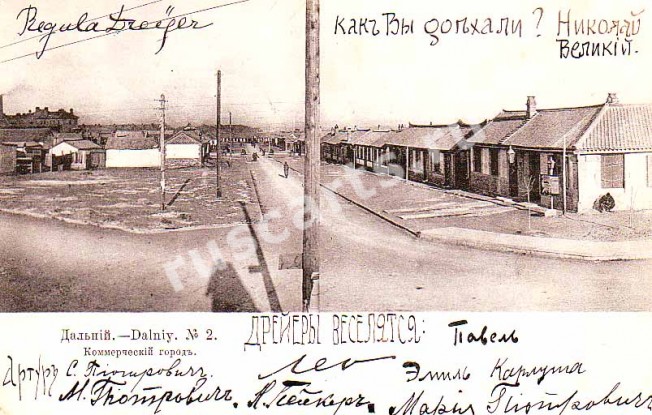 Regula Dreÿer
какъ Вы доѣхали? Николай
Великій.
ruscarts.ru
Дальній.—Dalniy. № 2.
Коммерческій городъ.
Дрейеры веселятся:
Павелъ
Артуръ
С. Піотровичъ
Лео
Эмиль Карлуша
М. Піотровичъ
Марія Піотровичъ